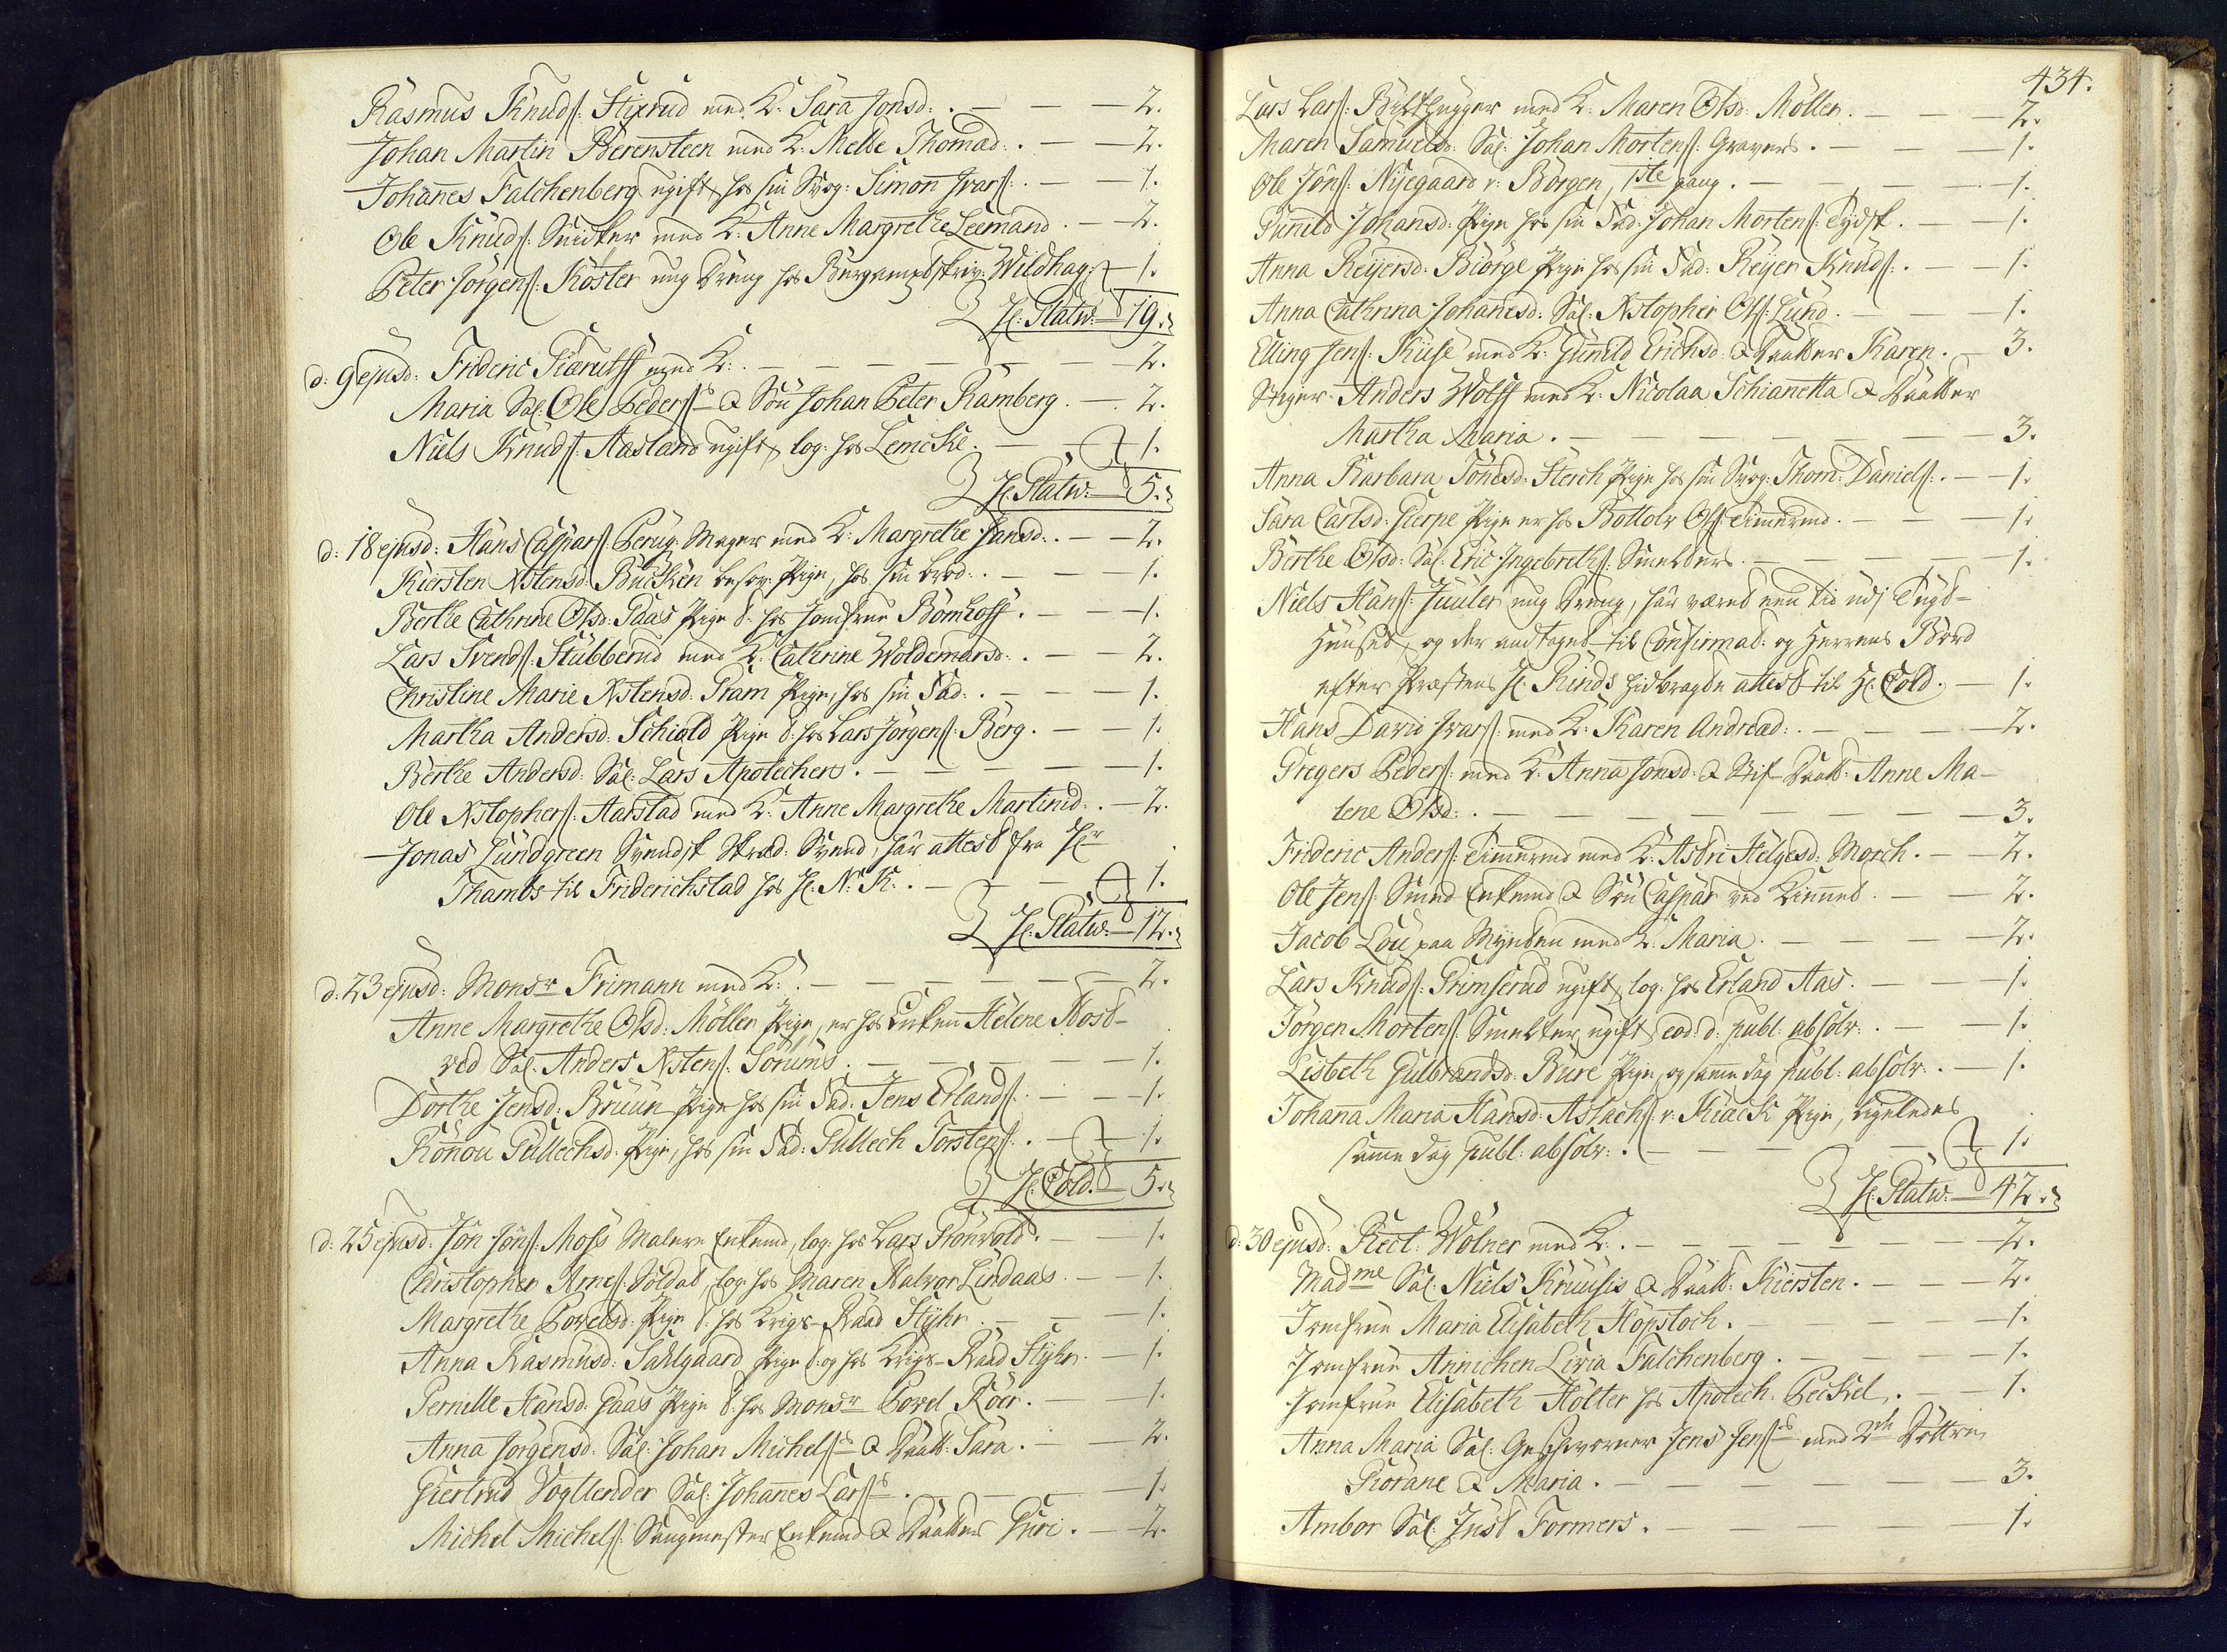 Rasmus Knuds: Stixrud med K: Sara Jonsd: . — — — 2.
Johan Martin Berensteen med K: Melle Thomæd: . — — 2.
Johannes Falchenberg ugift, hos sin Svog: Simon Ivars: . — — 1.
Ole Knuds: Snidker med K: Anne Margrethe Leemand . — — 2.
Peter Jörgens: Köster ung Dreng hos Bergampskriv: Wildhag: — 1.
H: Platw: — 19.
d: 9 ejusd: Frideric Kierulff med K: . — — — — — 2.
Maria Sal: Ole Peders:s & Sön Johan Peter Ramberg . — 2.
Niels Knuds: Aasland ugift, log: hos Lemcke . — — 1.
H: Platw: — 5.
d: 18 ejusd: Hans Caspars: Peruq: Mager med K: Margrethe Hansd: . — — 2.
Kiersten Xstensd: Bucken besov: Pige, hos sin brod: . — — 1.
Berthe Cathrine Olsd: Paas Pige t: hos Jomfrue Bömhoff . — — 1.
Lars Svends: Stubberud med K: Cathrine Woldemarsd: . — — 2.
Christine Marie Xstensd: Pram Pige, hos sin Fad: . — — 1.
Martha Andersd: Schiold Pige t: hos Lars Jörgens: Berg . — — 1.
Berthe Andersd: Sal: Lars Apotechers . — — — — 1.
Ole Xstophers: Aarstad med K: Anne Margrethe Martinid: . — 2.
Jonas Lundgreen Svendsk Skræd: Svend, har attest fra Hr
Thambs til Friderichstad hos H: N: K: . — — — 1.
H: Platw: — 12.
d: 23 ejusd: Monsr Frimann med K: . — — — — — 2.
Anne Margrethe Olsd: Möller Pige, er hos Enken Helene Host-
ved Sal: Anders Xstens: Sorums . — — — — 1.
Dorthe Jensd: Bruun Pige hos sin Fad: Jens Erlands: . — — 1.
Rönou Gullechsd: Pige, hos sin Fad: Gullech Torstens: . — 1.
H: Cold. — 5.
d: 25 ejusd: Jön Jöns: Moss Malere Enkemd, log: hos Lars Grönvold . — 1.
Christopher Arnes: Soldat, log: hos Maren Halvor Lindaas . — 1.
Margrethe Povelsd: Pige t: hos Krigs-Raad Stÿhr . — — 1.
Anna Rasmusd: Sahlgaard Pige t: og hos Krigs-Raad Stÿhr . — 1.
Pernille Hansd: Haas Pige t: hos Monsr Povel Röer . — — 1.
Anna Jörgensd: Sal: Johan Michels:s & Daatt: Sara . — — 2.
Giertrud Vogtlender Sal: Johannes Lars:s . — — — 1.
Michel Michels: Sangmester Enkemd & Daatter Guri . — 2.
434.
Lars Lars: med K: Maren Olsd: Möller . — — 2.
Maren Samuelsd: Sal: Johan Mortens: Gravers . — — — 1.
Ole Jöns: Nÿegaard v: Börgen, 1ste gang . — — — — 1.
Gunild Johansd: Pige hos sin Fad: Johan Mortens: Tydsk . — — 1.
Anna Reÿersd: Biörge Pige hos sin Fad: Reÿer Knuds: . — — 1.
Anna Cathrina Johannesd: Sal: Xstopher Ols: Lund . — — — 1.
Elling Jens: Kuse med K: Gunild Erichsd: & Daatter Karen . — 3.
Stiger Anders Wolff med K: Nicolaa Schianetta & Daatter
Martha Maria . — — — — — — 3.
Anna Barbara Tönesd: Sterch Pige hos sin Svog: Thom: Daniels: . — 1.
Sara Carlsd: Gierpe Pige er hos Bottolv Ols: Timmermd . — — 1.
Berthe Olsd: Sal: Eric Ingebreths: Smelters . — — — 1.
Niels Hans: Juuler ung Dreng, har været een tid udj Tugt-
Huuset, og der antaget til Confirmat: og Herrens Bord
efter Præstens H: Rinds hidbragde attest til H: Cold . — 1.
Hans David Ivars: med K: Karen Andreæd: . — — — 2.
Gregers Peders: med K: Anna Jonsd: & Stif-Daatt: Anne Ma-
lene Olsd: . — — — — — — — 3.
Frideric Anders: Timmermd med K: Astri Helgesd: Morch . — 2.
Ole Jens: Smed Enkemd & Sön Caspar ved . — — 2.
Jacob Lou paa Mynten med K: Maria . — — — — 2.
Lars Knuds: Grimserud ugift, log: hos Erland Aas . — — 1.
Jörgen Mortens: Smelter, ugift, eod: d: publ: absolv: . — — 1.
Lisbeth Gulbrandsd: Bure Pige, og samme dag publ: absolv: . — 1.
Johana Maria Hansd: Aslachs: v: Kiack Pige, ligeledes
samme dag publ: absolv: . — — — — 1.
H: Platw: — 42.
d: 30 ejusd: Rect: Wölner med K: . — — — — — 2.
Madme Sal: Niels Kruusis & Daatt: Kiersten . — — — 2.
Jomfrue Maria Elisabeth Hopstoch . — — — — 1.
Jomfrue Annichen Livia Falchenberg . — — — — 1.
Jomfrue Elisabeth Holter hos Apotech: Peckel . — — 1.
Anna Maria Sal: Geschworner Jens Jens:s med 2de Döttre,
Giorane & Maria . — — — — — 3.
Ambor Sal: Just Formers . — — — — — 1.